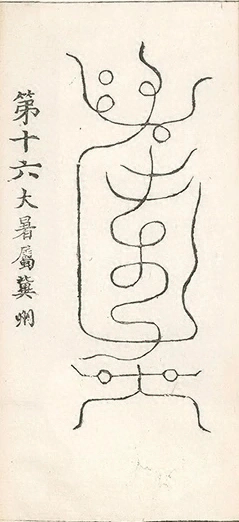 第十六大暑屬冀州